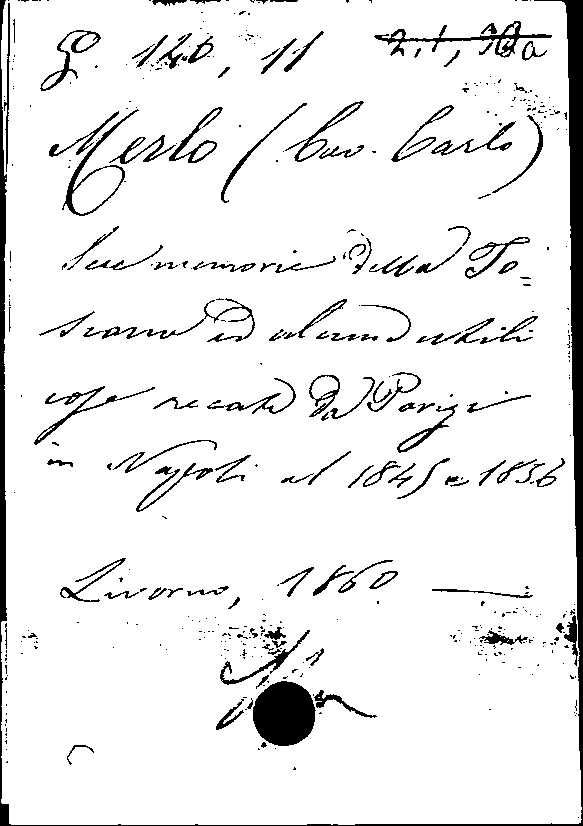 G. 120, 11 2, 1, 30a
Merlo (Cav. Carlo)
Sue memorie della To=
scana ed alcune utili
cose recate da Parigi
in Napoli al 1845 e 1856
Livorno, 1860